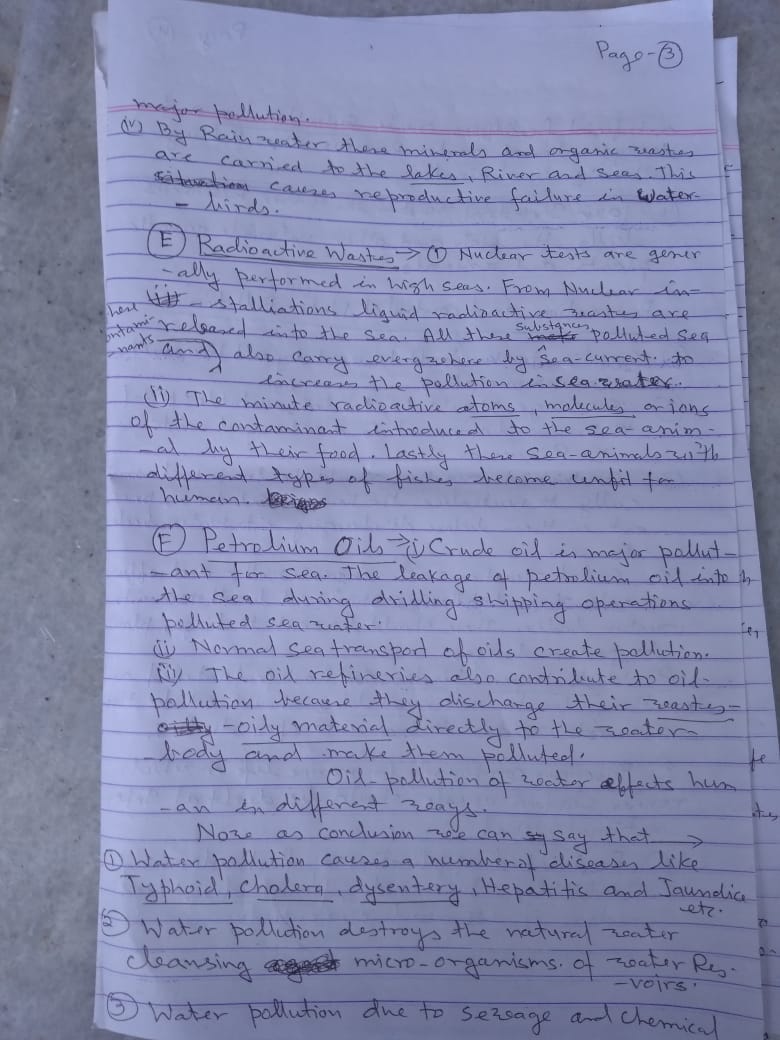 Page-③
major pollution.
(iv) By Rain water these minerals and organic wastes
are carried to the lakes, River and seas. This
situation causes reproductive failure in water-
- birds.
(E) Radioactive Wastes → (i) Nuclear tests are gener
-ally performed in high seas. From Nuclear in-
-stalliations liquid radioactive wastes are
released into the sea. All these substances polluted sea
contami-
-nants
and also carry everywhere by sea-current. to
increases the pollution in sea water.
(ii) The minute radioactive atoms, molecules or ions
of the contaminant introduced to the sea-anim-
-al by their food. Lastly these sea-animals with
different types of fishes become unfit for
human.
(F) Petrolium Oils → (i) Crude oil is major pollut-
-ant for sea. The leakage of petrolium oil into
the sea during drilling, shipping operations
polluted sea water.
(ii) Normal sea transport of oils create pollution.
(iii) The oil refineries also contribute to oil-
pollution because they discharge their wastes-
-oily material directly to the water-
-body and make them polluted.
Oil-pollution of water effects hum
-an in different ways.
Now as conclusion we can say that →
① Water pollution causes a number of diseases like
Typhoid, cholera, dysentery, Hepatitis and Jaundice
etc.
② Water pollution destroys the natural water
cleansing micro-organisms. of water Res-
-voirs.
③ Water pollution due to sewage and chemical